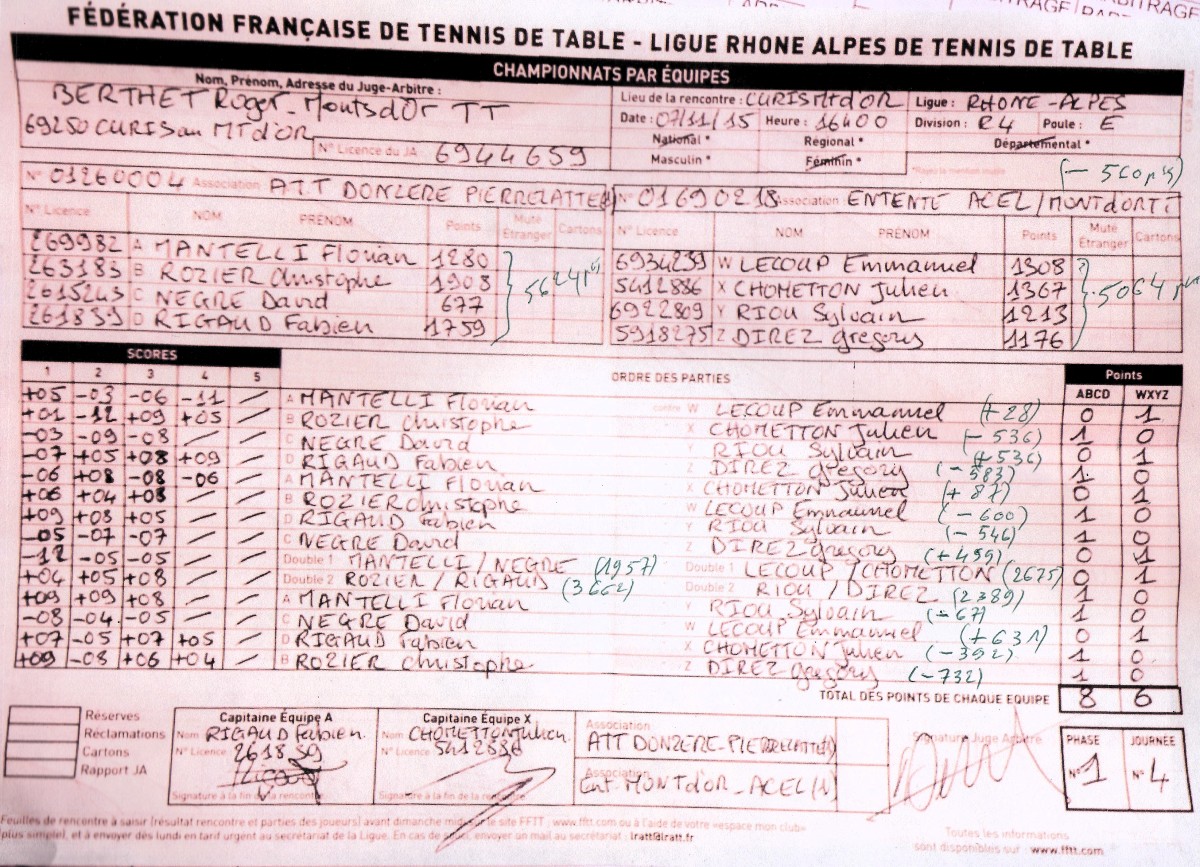 FÉDÉRATION FRANÇAISE DE TENNIS DE TABLE - LIGUE RHONE ALPES DE TENNIS DE TABLE
CHAMPIONNATS PAR ÉQUIPES
Nom, Prénom, Adresse du Juge-Arbitre :
BERTHET Roger - Montsdor TT
69250 CURIS au MT d'OR
N° Licence du JA 6944659
Lieu de la rencontre : CURIS MT d'OR
Ligue : RHONE - ALPES
Date : 07/11/15 Heure : 16H00
Division : R4 Poule : E
National * Régional * Départemental *
Masculin * Féminin *
(- 560 pts)
N° 01260004 Association ATT DONZERE PIERRELATTE
N° 01690218 Association ENTENTE ACEL/MONTdORTT
N° Licence NOM PRÉNOM Points Muté Étranger Cartons
N° Licence NOM PRÉNOM Points Muté Étranger Cartons
269982 A MANTELLI Florian 1280
6934239 W LECOUP Emmanuel 1308
263183 B ROZIER Christophe 1908
5624 pts
5412886 X CHOMETTON Julien 1367
5064 pts
2615243 C NEGRE David 677
6922809 Y RIOU Sylvain 1213
261839 D RIGAUD Fabien 1759
5918275 Z DIREZ gregory 1176
SCORES
ORDRE DES PARTIES
Points
1 2 3 4 5
ABCD WXYZ
+05 -03 -06 -11 / A MANTELLI Florian contre W LECOUP Emmanuel (+28) 0 1
+01 -12 +09 +05 / B ROZIER Christophe X CHOMETTON Julien (-536) 1 0
-03 -09 -08 / / C NEGRE David Y RIOU Sylvain (+536) 0 1
-07 +05 +08 +09 / D RIGAUD Fabien Z DIREZ gregory (-583) 1 0
-06 +08 -08 -06 / A MANTELLI Florian X CHOMETTON Julien (+87) 0 1
+06 +04 +08 / / B ROZIER Christophe W LECOUP Emmanuel (-600) 1 0
+09 +03 +05 / / D RIGAUD Fabien Y RIOU Sylvain (-546) 1 0
-05 -07 -07 / / C NEGRE David Z DIREZ gregory (+499) 0 1
-12 -05 -05 / / Double 1 MANTELLI / NEGRE (1957) Double 1 LECOUP / CHOMETTON (2675) 0 1
+04 +05 +08 / / Double 2 ROZIER / RIGAUD (3662) Double 2 RIOU / DIREZ (2389) 1 0
+09 +09 +08 / / A MANTELLI Florian Y RIOU Sylvain (-67) 1 0
-08 -04 -05 / / C NEGRE David W LECOUP Emmanuel (+631) 0 1
+07 -05 +07 +05 / D RIGAUD Fabien X CHOMETTON Julien (-392) 1 0
+09 -08 +06 +04 / B ROZIER Christophe Z DIREZ gregory (-732) 1 0
TOTAL DES POINTS DE CHAQUE EQUIPE 8 6
Réserves
Réclamations
Cartons
Rapport JA
Capitaine Équipe A
Nom RIGAUD Fabien
N° Licence 261839
Signature à la fin de la rencontre
Capitaine Équipe X
Nom CHOMETTON Julien
N° Licence 5412886
Signature à la fin de la rencontre
Association
ATT DONZERE-PIERRELATTE
Association
Ent. MONT d'OR - ACEL (N)
Signature Juge Arbitre
PHASE JOURNÉE
N° 1 N° 4
Feuilles de rencontre à saisir (résultat rencontre et parties des joueurs) avant dimanche midi sur le site FFTT : www.fftt.com ou à l'aide de votre «espace mon club»
plus simple), et à envoyer dès lundi en tarif urgent au secrétariat de la Ligue. En cas de souci, envoyer un mail au secrétariat : lratt@lratt.fr
Toutes les informations
sont disponibles sur : www.fftt.com